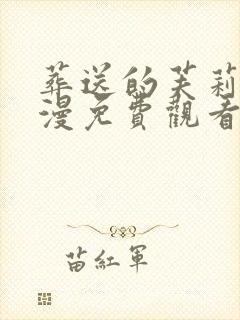 葬送的芙莉
漫免費觀看
苗紅軍